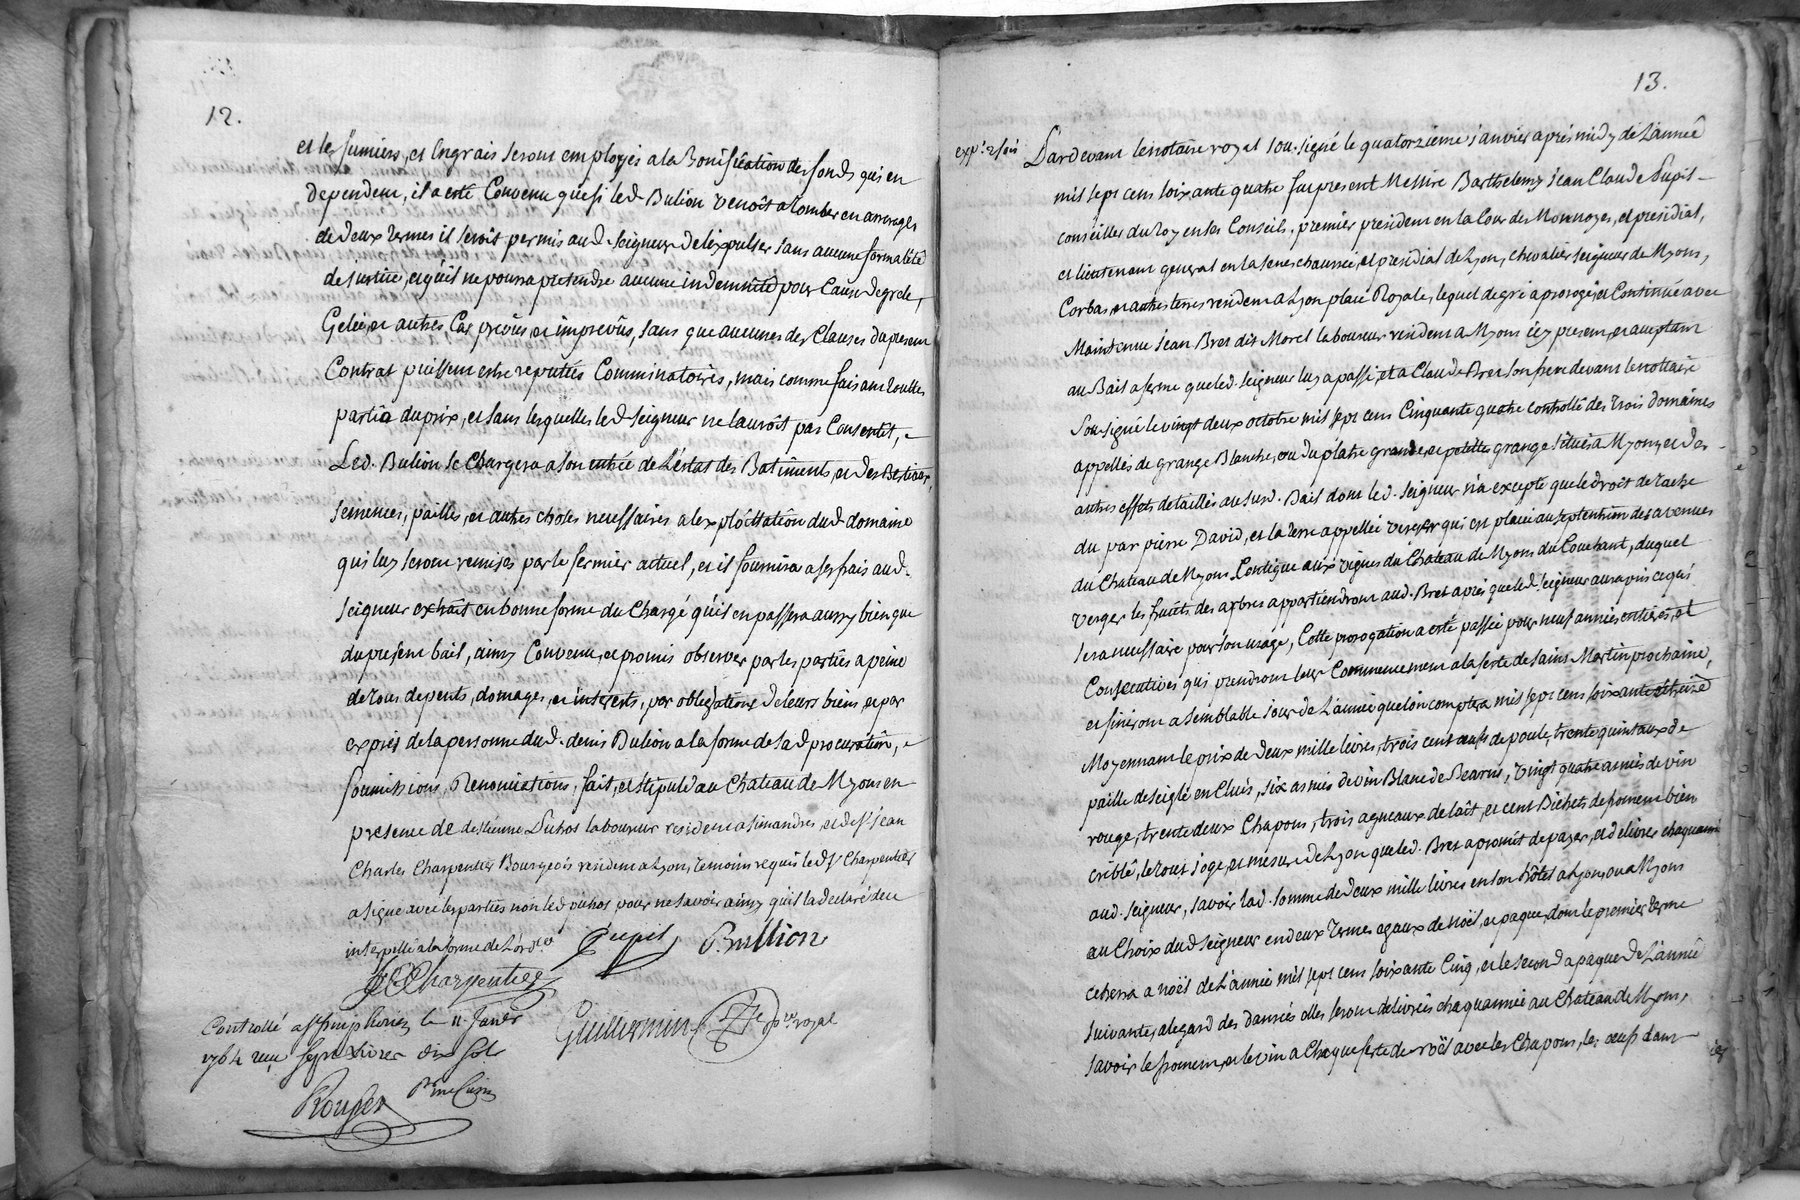 12.
et les fumiers, et Engrais seront employés a la Bonification des fonds qui en
dependent, il a esté Convenu que si led. Bulion venoit a tomber en arrerages
de deux termes il seroit permis aud. seigneur de l'expulser sans aucune formalité
de justice, et qu'il ne pourra pretendre aucune indemnité pour Cause de grele,
Gelée, et autres Cas prevûs et imprevûs, sans que aucunes des Clauses du present
Contrat puissent estre reputées Comminatoires, mais comme faisant toutes
partie du prix, et sans lesquelles led. seigneur ne l'auroit pas Consentit,
Led. Bulion se Chargera a son entrée de L'Estat des Batiments, et des Bestiaux,
semences, pailles, et autres choses necessaires a l'exploittation dud. domaine
qui luy seront remises par le fermier actuel, et il fournira a ses frais aud.
seigneur extrait en bonne forme du Chargé qu'il en passera aussy bien que
du present bail, ainsy Convenu, et promis observer par les parties a peine
de tous depents, domages, et interests, par obligations de leurs biens, et par
exprés de la personne dud. denis Bulion a la forme de sad. procuration,
soumissions, Renonciations, fait, et stipulé au Chateau de Myons en
presence de d'estienne Duhos laboureur resident a simandres, et de sr. jean
Charles Charpentier Bourgeois resident a Lyon, temoins requis led. sr. Charpentier
a signé avec les parties non led. duhos pour ne savoir ainsy qu'il l'a declaré de ce
interpellé a la forme de L'ordce
Pupil Bullion
JCCharpentier
Guillermin nre royal
Controllé a st simphorien le 11. Janer
1764 reçu sept Livres dix sols
Rouger
13.
expe. 2 fois
Pardevant le notaire royal sousigné le quatorzieme janvier aprés midy de L'année
mil sept cens soixante quatre fut present Messire Barthelemy jean Claude Pupil
conseiller du roy en ses Conseils, premier president en la Cour des Monnoyes, et presidial,
et lieutenant general en la senechaussée, et presidial de Lyon, chevalier seigneur de Myons,
Corbas, et autres terres resident a Lyon place Royale, lequel de gré a prorogé, et Continué avec
Maintenue jean Bret dit Morel laboureur resident a Myons icy present, et acceptant
au Bail a ferme que led. seigneur luy a passé, et a Claude Bret son frere devant le nottaire
sousigné le vingt deux octobre mil sept cens Cinquante quatre controllé des trois domaines
appellés de grange Blanche, ou du platre grande, et petittes grange situés a Myons, et des
autres effets detaillés au susd. Bail dont led. seigneur n'a excepté que le droit de tache
du par pierre David, et la terre appellée verger qui est placée au septentrion des avenues
du Chateau de Myons Contigue aux vignes du Chateau de Myons du Couchant, duquel
verger les fruits des arbres appartiendront aud. Bret aprés que led. seigneur aura pris ce qui
sera necessaire pour son usage, Cette prorogation a esté passée pour neuf années entieres, et
Consecutives qui prendront leur Commencement a la feste de saint Martin prochaine,
et finiront a semblable jour de L'année que l'on comptera mil sept cens soixante et treize
Moyennant le prix de deux mille livres, trois cent oeufs de poule, trente quintaux de
paille de seigle en Cluis, six asnées de vin Blanc de Bearns, vingt quatre asnées de vin
rouge, trente deux Chapons, trois agneaux de lait, et cent Bichets de froment bien
criblé, le tout joge, et mesure de Lyon que led. Bret a promit de payer, et delivrer chaqu'année
aud. seigneur, savoir lad. somme de deux mille livres en son hôtel a Lyon, ou a Myons
au Choix dud. seigneur en deux termes egaux de Noël, et paque, dont le premier terme
echerra a noël de L'année mil sept cens soixante Cinq, et le second a paque de L'année
suivante, a l'egard des danrés elles seront delivrées chaqu'année au Chateau de Myons,
savoir le froment, et le vin a Chaque feste de noël avec les Chapons, les oeufs dans